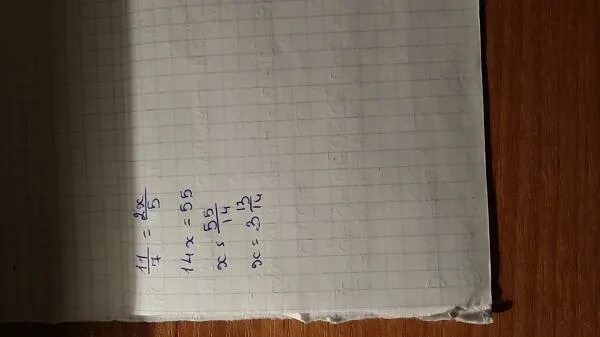 11/7 = 2x/5
14x = 55
x = 55/14
x = 3 13/14